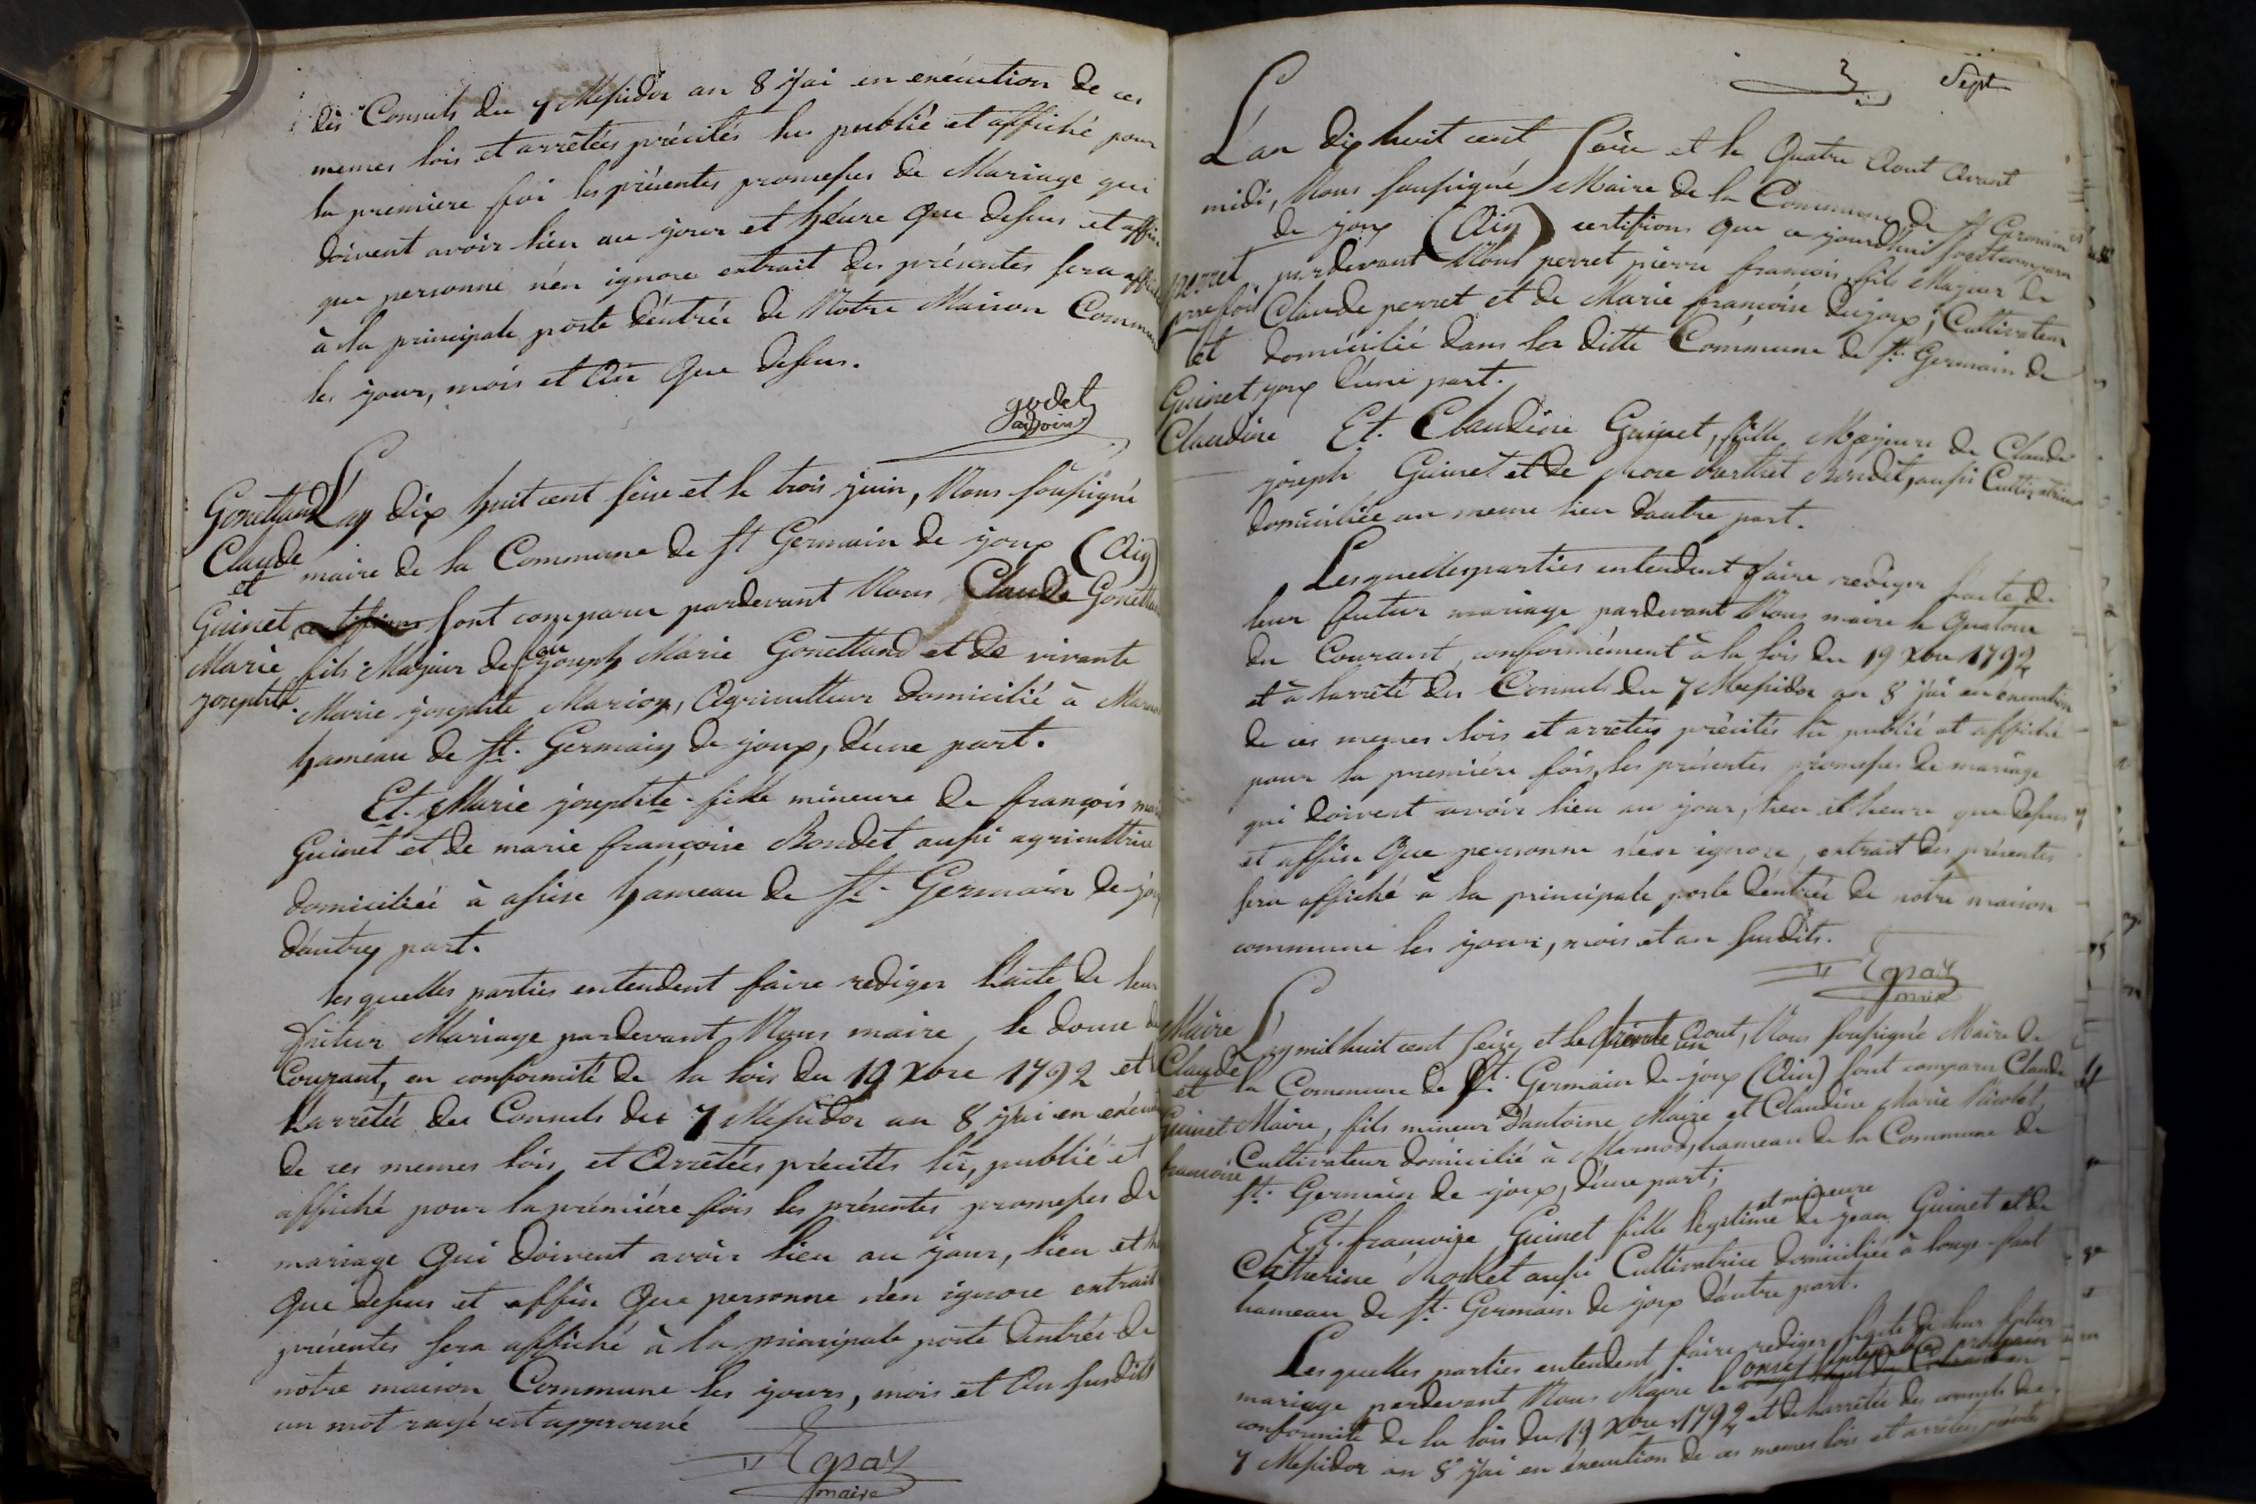 des Consuls du 7 Messidor an 8 j'ai en exécution de ces
memes lois et arrêtées précités lu publié et affiché pour
la premiere foi les présentes promesses de Mariage qui
doivent avoir lieu au jour et héure que dessus et affin
que personne n'en ignore extrait des présentes sera affiché
à la principale porte d'entrée de Notre Maison Commune
les jour, mois et An que dessus.
godet
adjoint
Gonettand
Claude
et
Guinet
Marie
josephte.
L'an dix huit cent seise et le trois juin, Nous soussigné
maire de la Commune de St Germain de joux (Ain)
certifions sont comparu pardevant Nous Claude Gonettand
fils Majeur de feu joseph Marie Gonettand et de vivante
Marie josephte Marion, Agriculteur domicilié à
hameau de St. Germain de joux, d'une part.
Et. Marie josephte fille mineure de françois marie
Guinet et de marie françoise Bondet aussi agricultrice
domiciliée à hameau de St. Germain de joux
d'autre part.
les quelles parties entendent faire rediger l'acte de leur
futur Mariage pardevant Nous maire le douze du
Courant, en conformité de la lois du 19 Xbre 1792 et
L'arrêtée des Consuls du 7 Messidor an 8 j'ai en exécution
de ces memes lois et Arrêtées précités lu, publié et
affiché pour la première fois les présentes promesses de
mariage qui doivent avoir lieu au jour, lieu et
que dessus et affin que personne n'en ignore extrait
présentes sera affiché à la principale porte d'entrée de
notre maison Commune les jours, mois et An susdits
un mot rayé est approuvé
Egraz
maire
Sept
perret
pierre fois
et
Guinet
Claudine
L'an dix huit cent seise et le Quatre Aout Avant
midi, Nous soussigné Maire de la Commune de St Germain
de joux (Ain) certifions que ce jourd'hui sont comparu
pardevant Nous perret pierre françois fils Majeur de
Claude perret et de Marie françoise Dujoux, Cultivateur
domicilié dans la ditte Commune de St. Germain de
joux d'une part.
Et. Claudine Guinet, fille Majeure de Claude
joseph Guinet et de Bondet, aussi Cultivatrice
domiciliée au meme lieu d'autre part.
Lesquelles parties entendent faire rediger l'acte de
leur futur mariage pardevant Nous maire le Quatorze
du Courant, conformément à la lois du 19 Xbre 1792
et à l'arrêté des Consuls du 7 Messidor an 8 j'ai en éxecution
de ces memes lois et arrêtées précités lu publié et affiché
pour la première fois les présentes promesses de mariage
qui doivent avoir lieu au jour, lieu et heure que dessus
et affin que personne n'en ignore, extrait des présentes
sera affiché à la principale porte d'entrée de notre maison
commune les jours, mois et an susdits.
Egraz
maire
Maire
Claude
et
Guinet
francoise
L'an mil huit cent seize et le trente un Aout, Nous soussigné Maire de
la Commune de St. Germain de joux (Ain) sont comparu Claude
Maire, fils mineur d'antoine Maire et Claudine Marie Nicolet
Cultivateur domicilié à Marnod, hameau de la Commune de
St. Germain de joux, d'une part;
Et. francoise Guinet fille legitime et mineure de jean Guinet et de
Catherine aussi Cultivatrice domiciliée à longe-faut
hameau de St. Germain de joux d'autre part.
Lesquelles parties entendent faire rediger l'acte de leur futur
mariage pardevant Nous Maire le onze septembre prochain en
conformité de la lois du 19 Xbre 1792 et de l'arrêtée des consuls du
7 Messidor an 8 j'ai en éxecution de ces memes lois et arrêtées précités